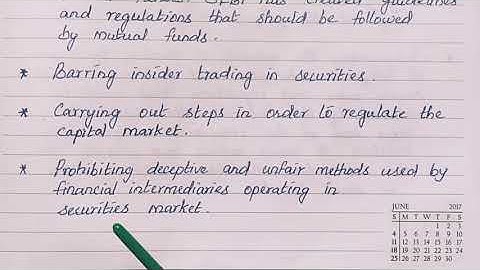 and regulations that should be followed
by mutual funds.
* Barring insider trading in securities.
* Carrying out steps in order to regulate the
capital market.
* Prohibiting deceptive and unfair methods used by
financial intermediaries operating in
securities market.
JUNE 2017
S M T W T F S
1 2 3
4 5 6 7 8 9 10
11 12 13 14 15 16 17
18 19 20 21 22 23 24
25 26 27 28 29 30